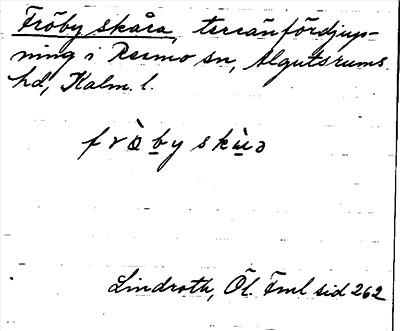 Fröby skåra, terränfördjup-
ning i Resmo sn, Algutsrums
hd, Kalm. l.
frö̀bysku̇̀ə
Lindroth, Öl. Fml sid 262